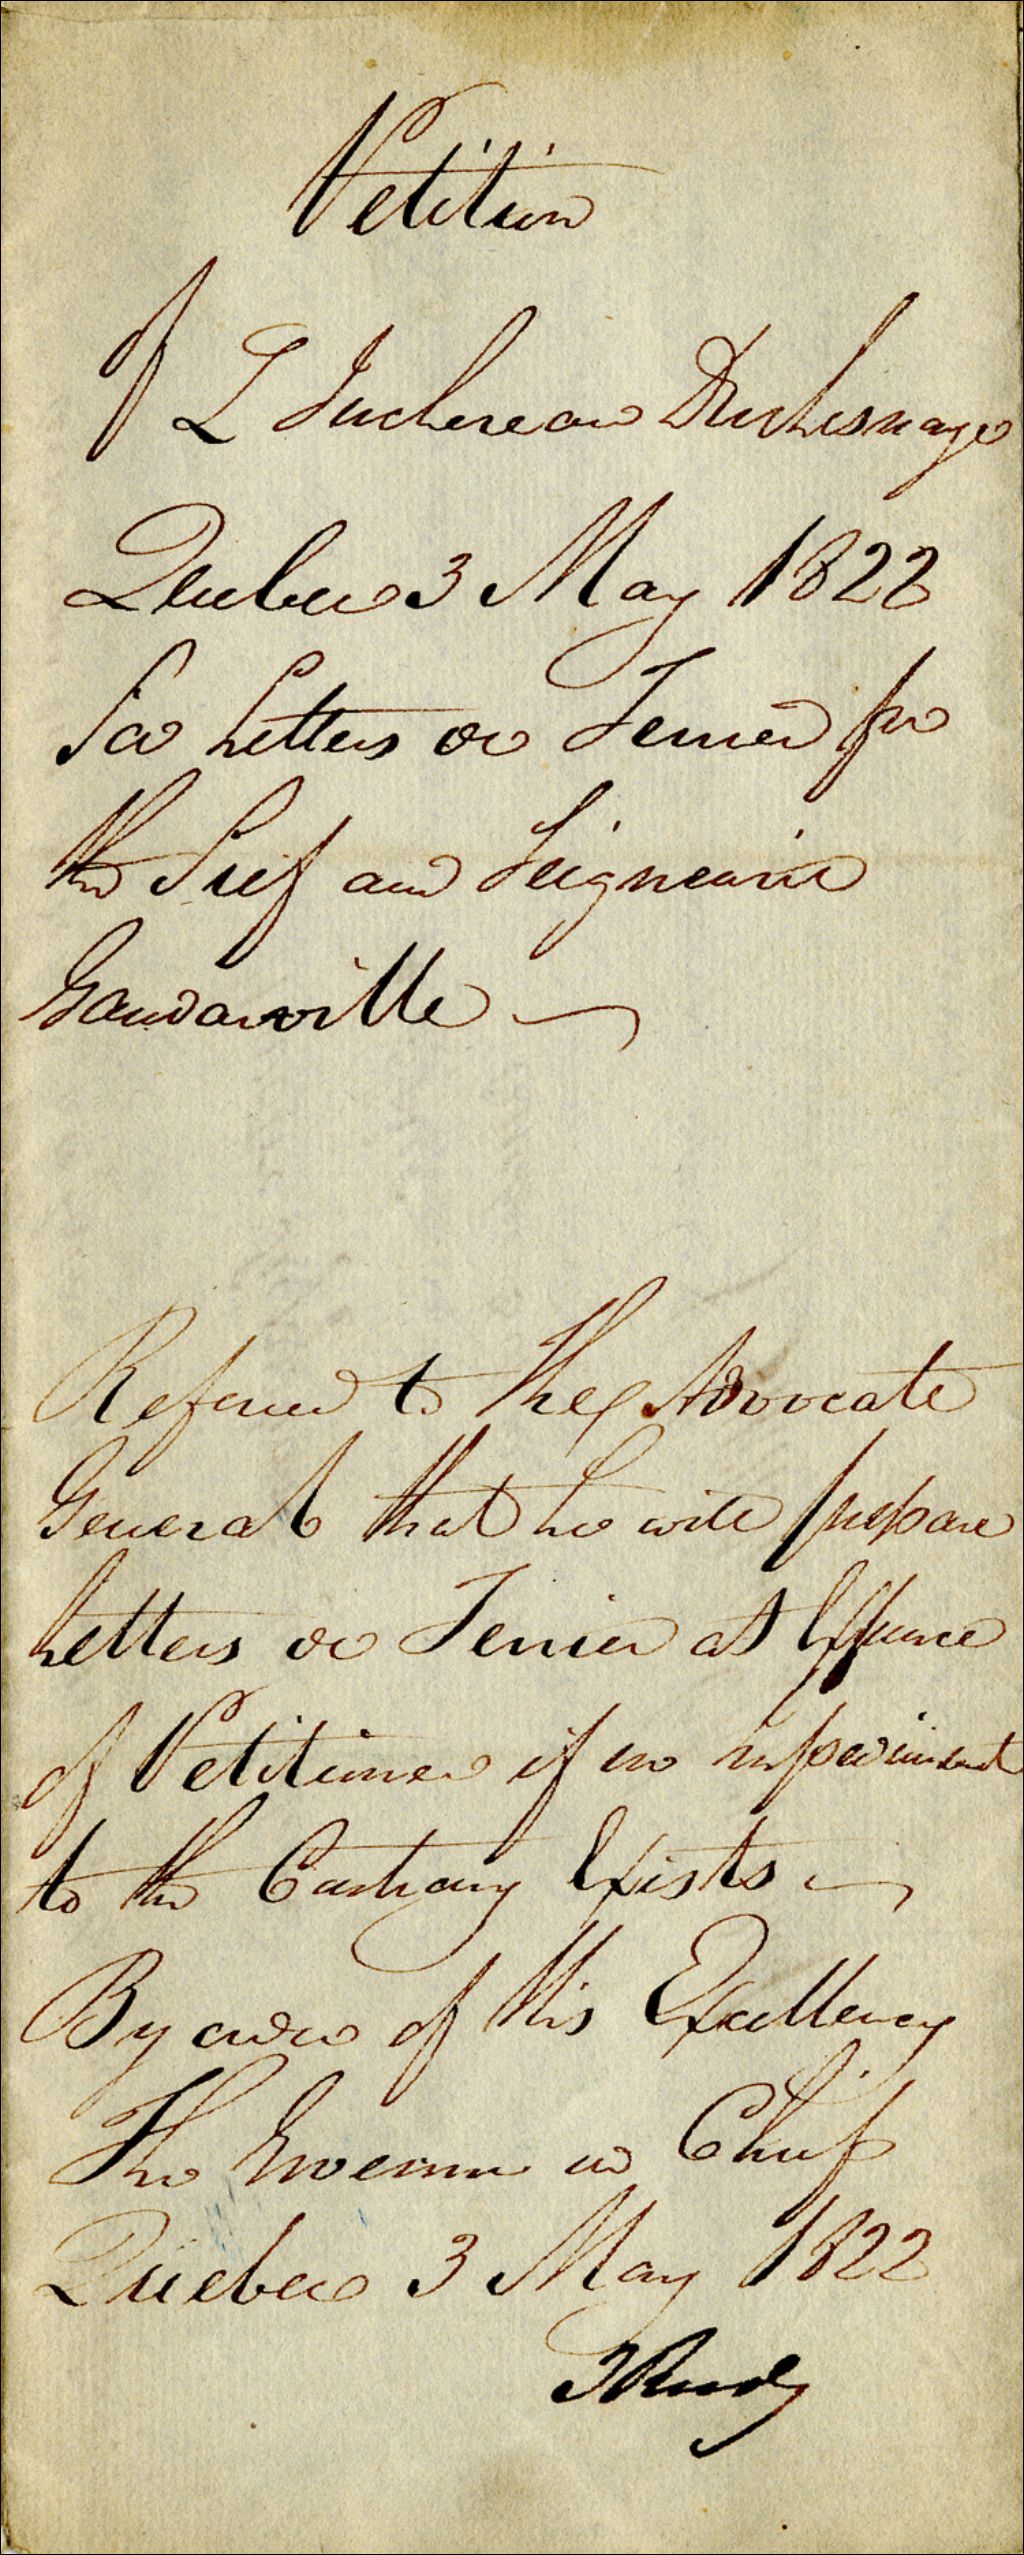 Petition
of L Juchereau Duchesnaye
Quebec 3 May 1822
for Letters de Terrier for
the Fief and Seigneurie
Gaudarville
Referred to the Advocate
General that he will prepare
Letters de Terrier at Expence
of Petitioner if no impediment
to the Contrary Exists
By order of His Excellency
The Governor in Chief
Quebec 3 May 1822